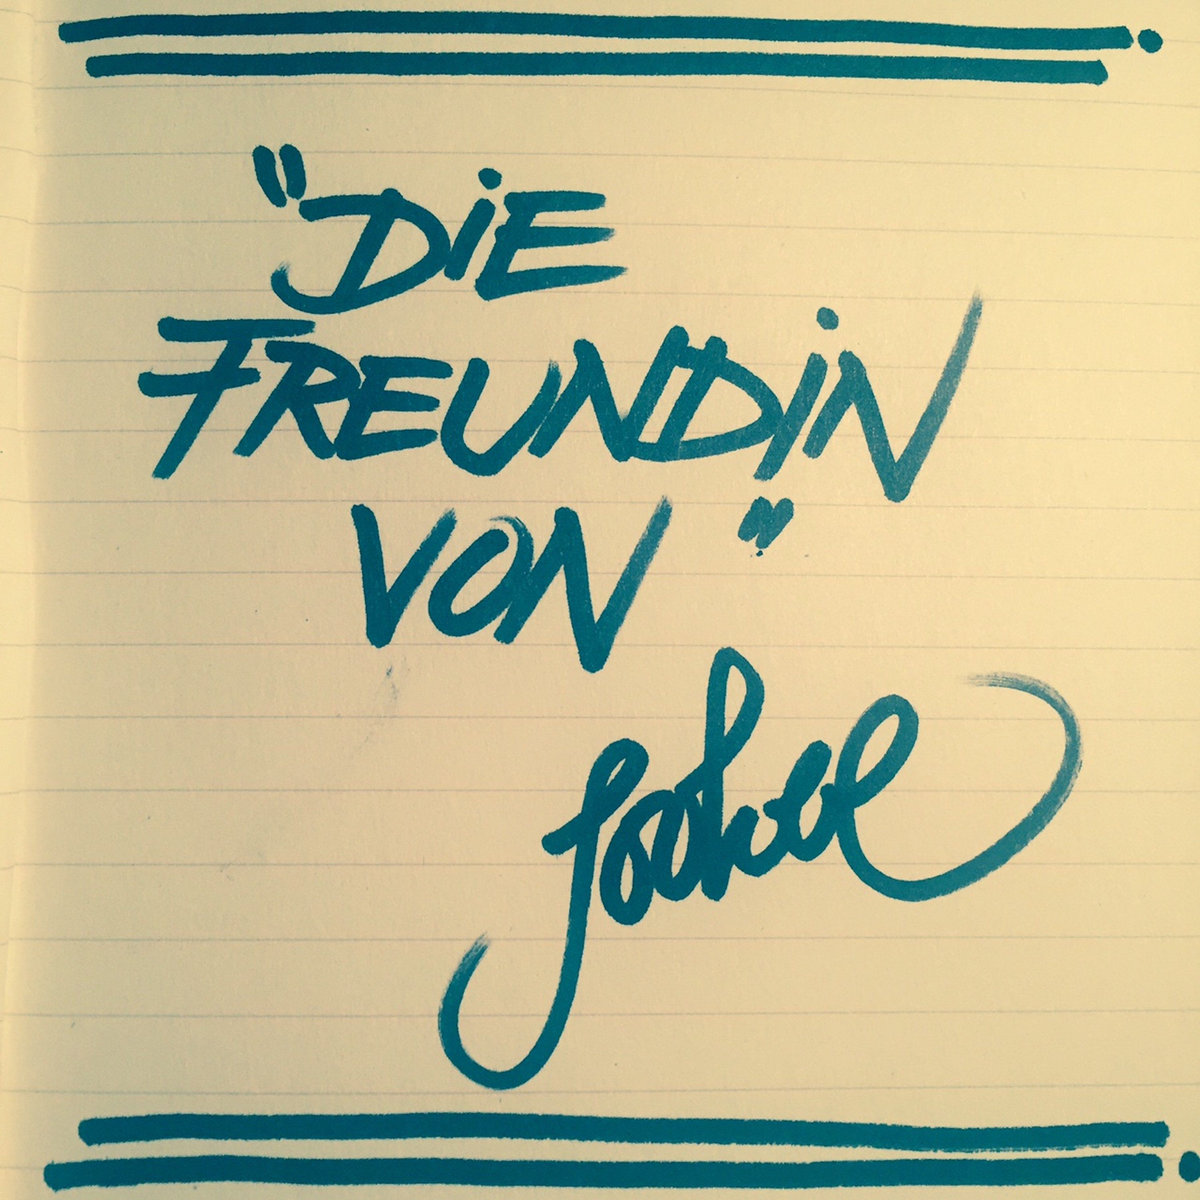 "DiE
FREUNDiN
VON"
Jockel